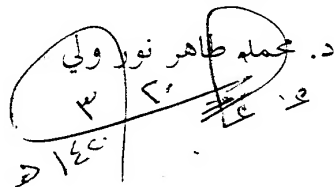 د. محمد طاهر نور ولي
٢٠ ٣
١٤٢٠ هـ